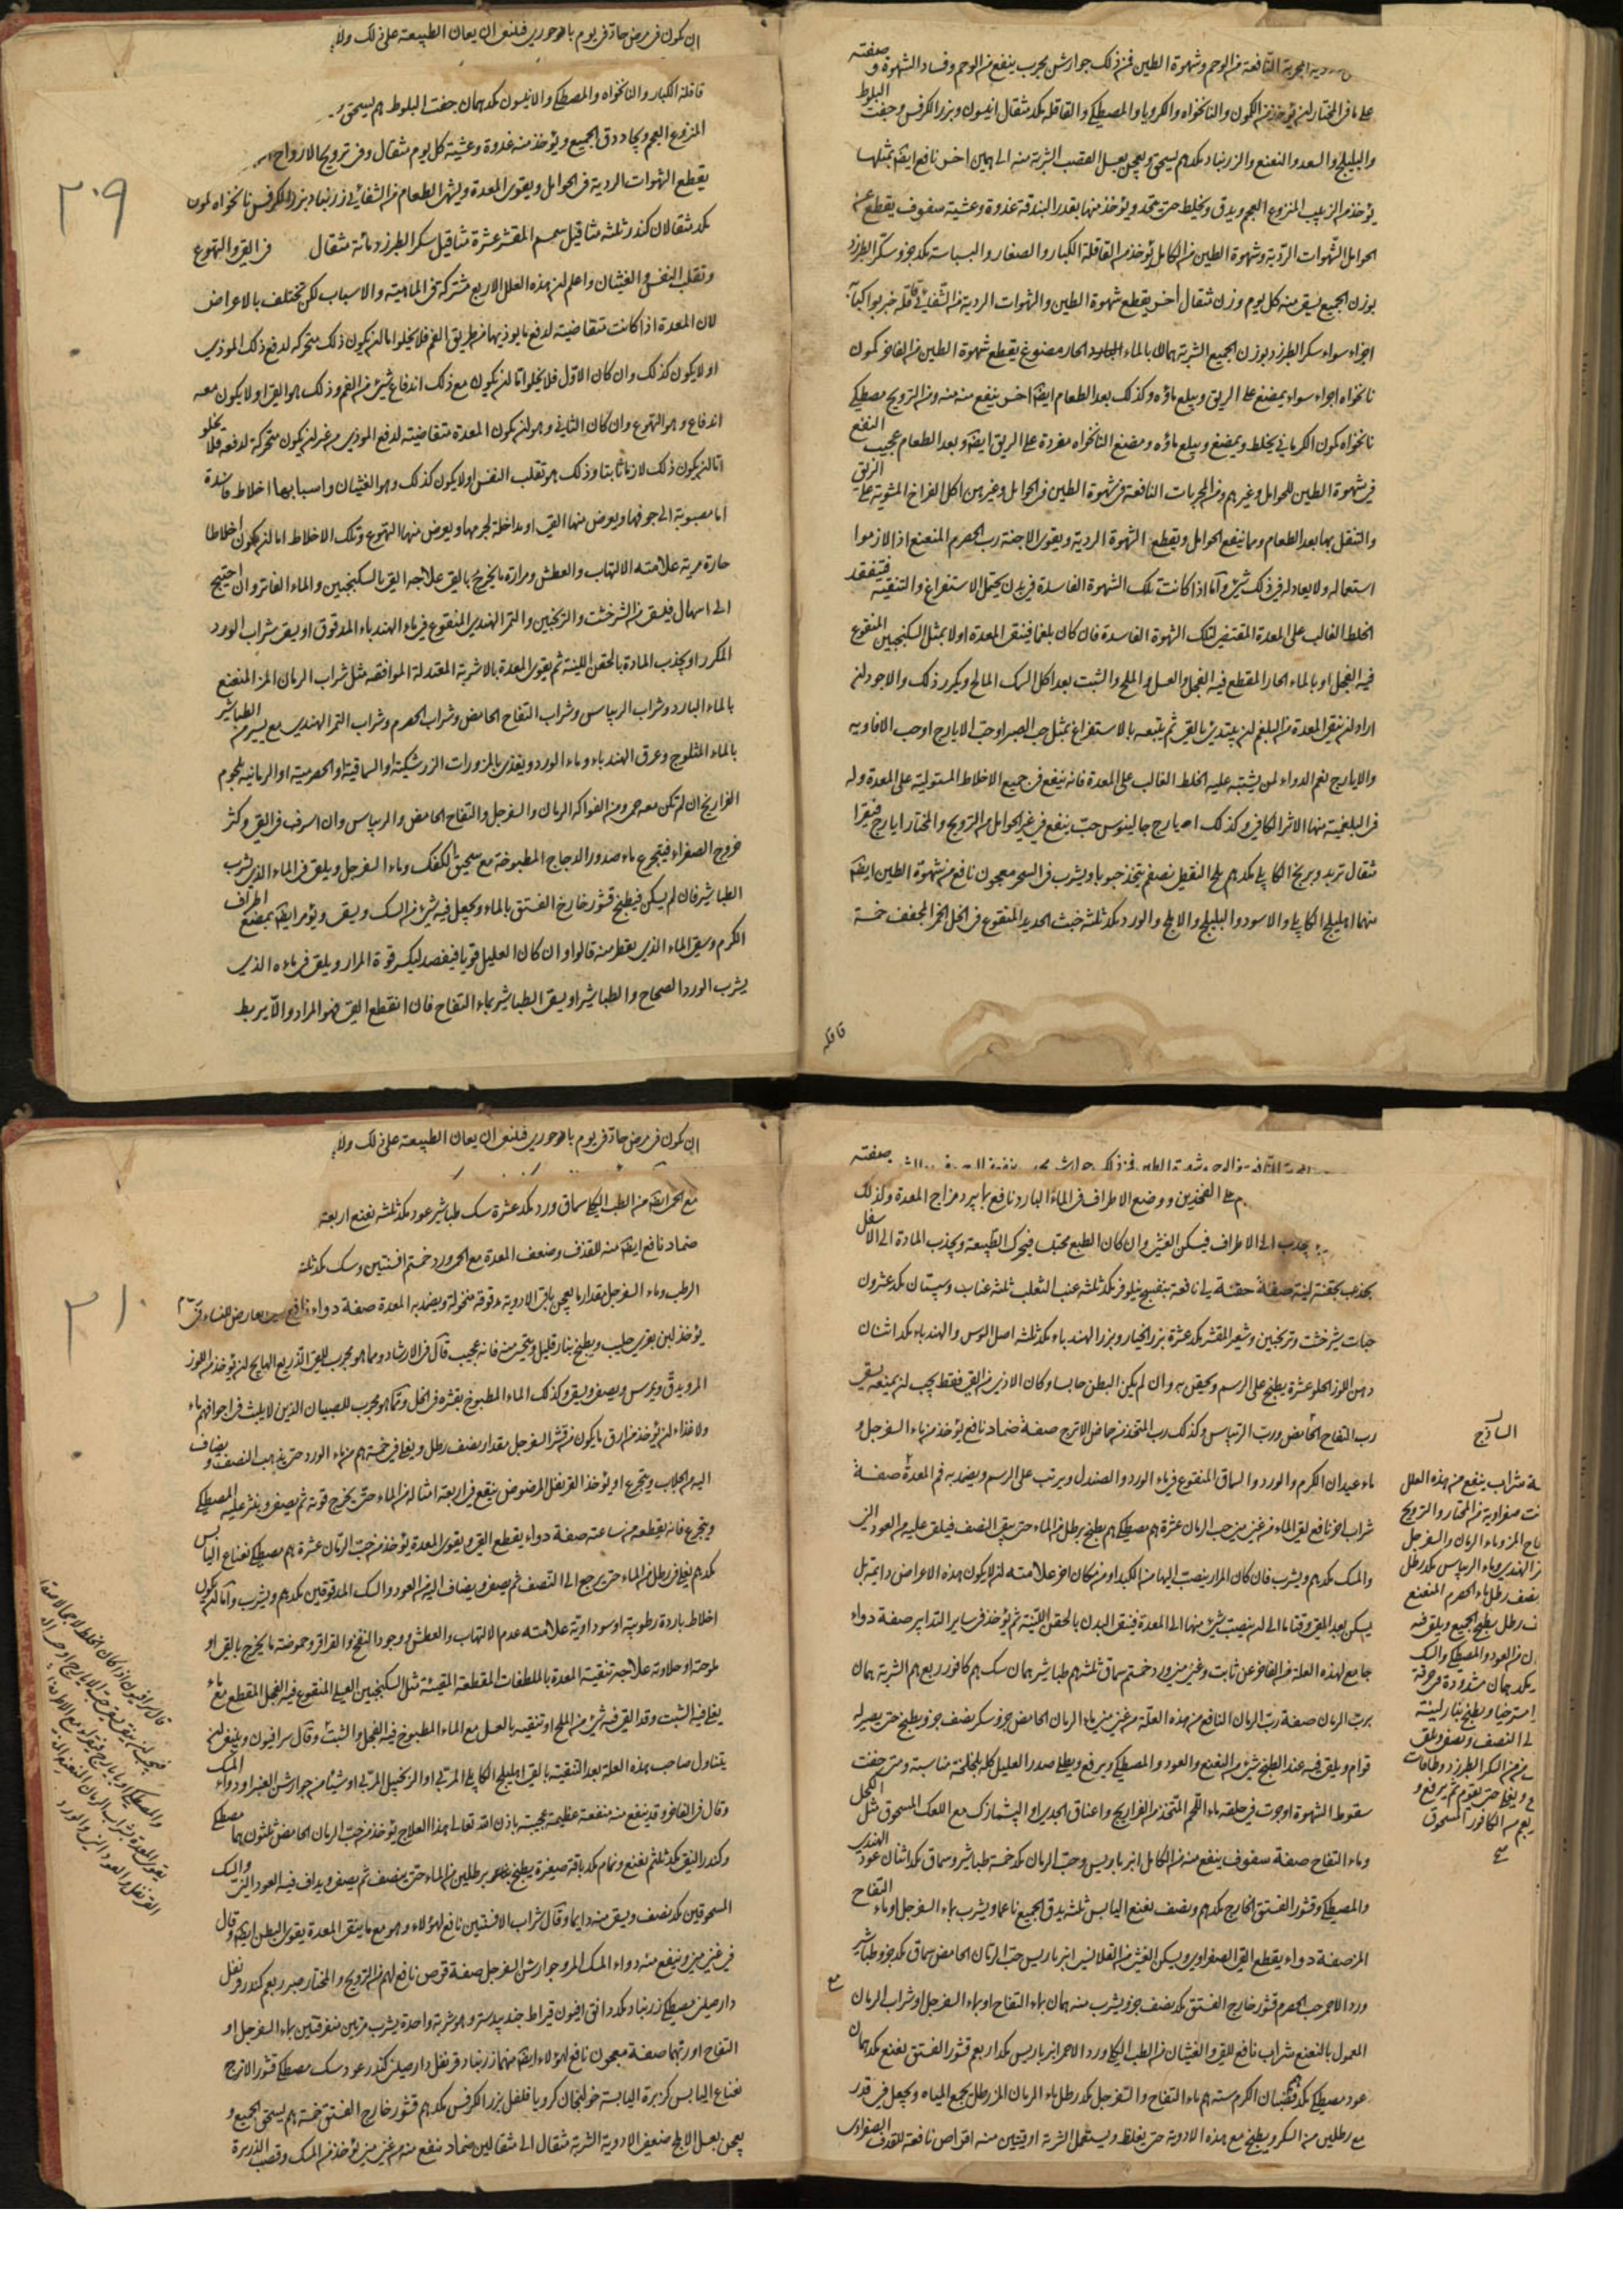 الادوية المجربة النافعة من الوحم وشهوة الطين فمن ذلك جوارشن مجرب ينفع من الوحم وفساد الشهوة وصفته
على ما في المختار ان يؤخذ من الكمون والنانخواه والكرويا والمصطكي والقاقلة مكد مثقال انيسون وبزر الكرفس وجفت البلوط
والبليلج والسعد والنعنع والزرنباد مكدهم يسحق ويعجن بعسل القصب الشربة منه الى اخر نافع ايضا بمثلها
يؤخذ من الزبيب المنزوع العجم ويدق ويخلط حتى يتحد ويؤخذ منها بقدر البندقة غدوة وعشية سفوف يقطع عن
الحوامل الشهوات الردية وشهوة الطين من الكامل يؤخذ من القاقلة الكبار والصغار والبسباسة مكد جزو سكر الطبرزد
بوزن الجميع يسقى منه كل يوم وزن مثقال اخر يقطع شهوة الطين والشهوات الردية من الشفائي قاقله خيربوا كبابه
اجزاء سواء سكر الطبرزد بوزن الجميع الشربة بالماء الحار مضوغ يقطع شهوة الطين من الفاخر كمون
نانخواه اجزاء سواء يمضغ على الريق ويبلع ماؤه وكذلك بعد الطعام ايضا اخر ينفع منه من الترويح مصطكي
نانخواه كمون الكرماني يخلط ويمضغ ويبلع ماؤه ومضغ النانخواه مفردة على الريق ايضا وبعد الطعام عجيب النفع
في شهوة الطين للحوامل وغيرهم ومن المجربات النافعة في شهوة الطين في الحوامل وغيرهن اكل الفراخ المشوية على الريق
والتنقل بها بعد الطعام ومما ينفع الحوامل ويقطع الشهوة الردية ويقوى الاجنة رب الحصرم المنعنع اذا لازموا
استعماله ولا يعادله في ذلك شئ واما اذا كانت تلك الشهوة الفاسدة في بدن يحتمل الاستفراغ والتنقية فيتفقد
الخلط الغالب على المعدة المقتضي لتلك الشهوة الفاسدة فان كان بلغما فينقى المعدة اولا بمثل السكنجبين المنقوع
فيه الفجل او بالماء الحار المقطع فيه الفجل والعسل والملح والشبت بعد اكل السمك المالح ويكرر ذلك والاجود لمن
اراد ان ينقى المعدة من البلغم ان يبتدئ بالقئ ثم يتبعه بالاستفراغ بمثل حب الصبر او حب الايارج او حب الافاويه
والايارج نعم الدواء لمن يشتبه عليه الخلط الغالب على المعدة فانه ينفع من جميع الاخلاط المستولية على المعدة وله
في البلغمية منها الاثر الكافي وكذلك ايارج جالينوس حب ينفع في غير الحوامل من الترويح والمختار ايارج فيقرا
مثقال تربد وبرنج الكابلي مكدهم ملح النفطي نصفهم يتخذ حبوبا ويشرب في السحر معجون نافع من شهوة الطين ايضا
منهما اهليلج الكابلي والاسود والبليلج والاملج والورد مكد ثلثه خبث الحديد المنقوع في الخل الخمر المجفف خمسة
قاقله
ان يكون في مرض حاد في يوم باحوري فلينبغي ان يعان الطبيعة على ذلك ولا
قاقلة الكبار والنانخواه والمصطكي والانيسون مكدهمان جفت البلوط هم يسحق و
المنزوع العجم ويجاد دق الجميع ويؤخذ منه غدوة وعشية كل يوم مثقال وفي ترويح الارواح
يقطع الشهوات الردية في الحوامل ويقوى المعدة ويشهى الطعام من الشفائي زرنباد بزر الكرفس نانخواه كمون
مكد مثقالان كندر ثلثه مثاقيل سمسم المقشر عشرة مثاقيل سكر الطبرزد مائة مثقال في القئ والتهوع
وتقلب النفس والغثيان واعلم ان هذه العلل الاربع مشتركة في الماهية والاسباب لكن تختلف بالاعراض
لان المعدة اذا كانت متقاضية لدفع ما يوذيها من طريق الفم فلا يخلوا اما ان يكون ذلك متحركة لدفع ذلك الموذي
او لا يكون كذلك وان كان الاول فلا يخلوا اما ان يكون مع ذلك اندفاع شئ من الفم وذلك هو القئ او لا يكون معه
اندفاع وهو التهوع وان كان الثاني وهو ان يكون المعدة متقاضية لدفع الموذي من غير ان يكون متحركة لدفعه فلا يخلو
اما ان يكون ذلك لازما ثابتا وذلك هو تقلب النفس او لا يكون كذلك وهو الغثيان واسبابها اخلاط فاسدة
اما مصبوبة الى جوفها ويعرض منها القئ او مداخلة لجرمها ويعرض منها التهوع وتلك الاخلاط اما ان يكون اخلاطا
حارة مرية علامته الالتهاب والعطش ومرارة ما يخرج بالقئ علاجه القئ بالسكنجبين والماء الفاتر وان احتيج
الى اسهال فيسقى من الشرخشت والترنجبين والتمر الهندي المنقوع في ماء الهندباء المدقوق او يسقى شراب الورد
المكرر او يجذب المادة بالحقن اللينة ثم يقوى المعدة بالاشربة المعتدلة الموافقة مثل شراب الرمان المز المنعنع
بالماء البارد وشراب الريباس وشراب التفاح الحامض وشراب الحصرم وشراب التمر الهندي مع يسير من الطباشير
بالماء المثلوج وعرق الهندباء وماء الورد ويغذى بالمزورات الزرشكية او السماقية او الحصرمية او الرمانية بلحوم
الفراريج ان لم تكن معه حمى ومن الفواكه الرمان والسفرجل والتفاح الحامض والريباس وان اسرف في القئ وكثر
خروج الصفراء فيتجرع ماء صدور الدجاج المطبوخة مع سحيق الكعك وماء السفرجل ويلقى في الماء الذي يشرب
الطباشير فان لم يسكن فيطبخ قشور خارج الفستق بالماء ويجعل فيه شئ من السك ويسقى ويؤمر ايضا بمضغ اطراف
الكرم وسقى الماء الذي يقطر منه قالوا وان كان العليل قويا فيفصد ليكسر قوة المرار ويلقى في ماءه الذي
يشرب الورد الصحاح والطباشير او يسقى الطباشير بماء التفاح فان انقطع القئ فهو المراد والا يربط
٢٠٩
صفته
على الفخذين ووضع الاطراف في الماء البارد نافع بما يبرد مزاج المعدة ولذلك
يجذب الى الاطراف فيسكن الغثى وان كان الطبع محتبسا فيحرك الطبيعة ويجذب المادة الى الاسفل
بحقنة لينة صفة حقنة نافعة بنفسج نيلوفر مكد ثلثه عنب الثعلب ثلثه عناب وسپستان مكد عشرون
حبات شيرخشت وترنجبين وشعير المقشر مكد عشرة بزر الخيار وبزر الهندباء مكد ثلثه اصل السوس والهندباء مكد اثنان
دهن اللوز الحلو عشرة يطبخ على الرسم ويحقن به وان لم يكن البطن حابسا وكان الاذى من القئ فقط يجب ان يمنعه بسقى
رب التفاح الحامض ورب الريباس وكذلك رب المتخذ من حماض الاترج صفة ضماد نافع يؤخذ من ماء السفرجل و
ماء عيدان الكرم والورد والسماق المنقوع في ماء الورد والصندل ويرتب على الرسم ويضمد به فم المعدة صفة
شراب اخر نافع لقئ الماء من غنى منى حب الرمان عشرة هم مصطكي هم يطبخ برطل من الماء حتى يبقى النصف فيلقى عليه من العود الني
والمسك مكدهم ويشرب فان كان المرار ينصب اليها من الكبد او من مكان اخر علامته ان لا يكون هذه الاعراض دائمة بل
يسكن بعد القئ وقتا ما الى ان ينصب شئ منهما الى المعدة فينقى البدن بالحقن اللينة ثم يؤخذ في سائر التدابير صفة دواء
جامع لهذه العلة من الفاخر عن ثابت وغنى منى ورد خمستهم سماق ثلثهم طباشير همان سك هم كافور ربعهم الشربة همان
برب الرمان صفة رب الرمان النافع من هذه العلة من غنى منى ماء الرمان الحامض جزو سكر نصف جزو يطبخ حتى يصير له
قوام ويلقى فيه عند الطبخ شئ من النعنع والعود والمصطكي ويرفع ويطلى صدر العليل كله بلخلخة مناسبة ومتى خفت
سقوط الشهوة اوجرت في حلقه ماء اللحم المتخذ من الفراريج واعناق الجدي او الپشمازك مع الكعك المسحوق مثل الكحل
وماء التفاح صفة سفوف ينفع منه من الكامل انبرباريس وحب الرمان مكد خمسة طباشير وسماق مكد اثنان عود الهندي
والمصطكي وقشور الفستق الخارج مكدهم ونصف نعنع اليابس ثلثه يدق الجميع ناعما ويشرب بماء السفرجل او ماء التفاح
المز صفة دواء يقطع القئ الصفراوي ويسكن الغثى من القلانسي انبرباريس حب الرمان الحامض سماق مكد جزو طباشير
ورد الاحمر حب الحصرم قشور خارج الفستق مكد نصف جزو يشرب منه همان بماء التفاح او بماء السفرجل او شراب الرمان
المعمول بالنعنع شراب نافع للقئ والغثيان من الطب الملكي ورد الاحمر انبرباريس مكد اربعهم قشور الفستق نعنع مكدهمان
عود مصطكي مكد قضبان الكرم ستة هم ماء التفاح والسفرجل مكد رطل ماء الرمان المز رطل يجمع المياه ويجعل في قدر
مع رطلين من السكر ويطبخ مع هذه الادوية حتى يغلظ ويستعمل الشربة اوقيتين منه اقراص نافعة للقذف الصفراوي
الساذج
شراب ينفع من هذه العلل
صفراوية من المختار والترويح
المز وماء الرمان والسفرجل
الهندي وماء الريباس مكد رطل
نصف رطل ماء الحصرم المنعنع
رطل يطبخ الجميع ويلقى فيه
من العود والمصطكي والسك
مكدهمان مشدودة في خرقة
ويطبخ بنار لينة
الى النصف ويصفى ويلقى
من السكر الطبرزد وطاقات
ويغلى حتى يقوم ثم يرفع و
ربعهم من الكافور المسحوق
ان يكون في مرض حاد في يوم باحوري فلينبغي ان يعان الطبيعة على ذلك ولا
مع الحمى ايضا من الطب الملكي سماق ورد مكد عشرة سك طباشير عود مكد ثلثه نعنع اربعة
ضماد نافع ايضا منه للقذف وضعف المعدة مع الحمى ورد خمستهم افسنتين وسك مكد ثلثه
الرطب وماء السفرجل مقدار ما يعجن به باقي الادوية مدقوقة منخولة ويضمد به المعدة صفة دواء نافع عارض للنساء
يؤخذ لبن بقري حليب ويطبخ بنار قليل ويتحسى منه فانه عجيب قال في الارشاد ومما هو مجرب للقئ الذريع الهايج ان يؤخذ من اللوز
المر ويدق ويمرس ويصفى ويسقى وكذلك الماء المطبوخ بقشره في الخل ومما هو مجرب للصبيان الذين لا يلبث في اجوافهم ماء
ولا غذاء ان يؤخذ من ارق ما يكون من قشر السفرجل مقدار نصف رطل ويغلى في خمسة هم من ماء الورد حتى يذهب النصف ويضاف
اليه من الجلاب ويتجرع او يؤخذ القرنفل المرضوض ينقع في اربعة امثاله من الماء حتى يخرج قوته ثم يصفى وينثر عليه المصطكي
ويتجرع فانه يقطعه من ساعته صفة دواء يقطع القئ ويقوى المعدة يؤخذ من حب الرمان عشرة هم مصطكي نعناع اليابس
مكدهم يغلى في رطل من الماء حتى يرجع الى النصف ثم يصفى ويضاف اليه من العود والسك المدقوقين مكدهم ويشرب واما ان يكون
اخلاط باردة رطوبية او سوداوية علامته عدم الالتهاب والعطش ووجود النفخ والقراقر وحموضة ما يخرج بالقئ او
ملوحته او حلاوته علاجه تنقية المعدة بالملطفات المقطعة المقيئة مثل السكنجبين العسلي المنقوع فيه الفجل المقطع مع ماء
يغلى فيه الشبت وقد القي فيه شئ من الملح او تنقيه بالعسل مع الماء المطبوخ فيه الفجل والشبت وقال سرافيون وينبغي ان
يتناول صاحب هذه العلة بعد التنقية بالقئ اهليلج الكابلي المربى او الزنجبيل المربى او شيئا من جوارشن العنبر او دواء المسك
وقال في الفاخر وقد ينفع منه منفعة عظيمة عجيبة باذن الله تعالى هذا العلاج يؤخذ من حب الرمان الحامض ثلثون هما مصطكي
وكندر النقي مكد ثلثهم نعنع ونمام مكد باقة صغيرة يطبخ برطلين من الماء حتى ينصف ثم يصفى ويداف فيه العود الني والسك
المسحوقين مكد نصف ويسقى منه دايما وقال شراب الافسنتين نافع لهؤلاء وهو مع ما ينقى المعدة يقوى البطن ايضا وقال
في غنى منى وينفع منه دواء المسك المر وجوارشن السفرجل صفة قرص نافع لهم من الترويح والمختار صبر ربعهم كندر قرنفل
دارصيني مصطكي زرنباد مكد دانق افيون قيراط جندبيدستر وهو شربة واحدة يشرب مرتين متفرقتين بماء السفرجل او
التفاح او ربهما صفة معجون نافع لهؤلاء ايضا منهما زرنباد قرنفل دارصيني كندر عود سك مصطكي قشور الاترج
نعناع اليابس كزبرة اليابسة خولنجان كرويا فلفل بزر الكرفس مكدهم قشور خارج الفستق خمسة هم يسحق الجميع و
يعجن بعسل الاملج ضعفي الادوية الشربة مثقال الى مثقالين ضماد ينفع منهم من غنى منى يؤخذ من المسك وقصب الذريرة
٢١٠
قال سرافيون اذا كان الخلط
فيجب ان ينقى بحب الايارج
والمصطكي او بايارج فيقرا
يقوى المعدة بشراب الرمان المنعنع
القرنفل والعود الني والورد